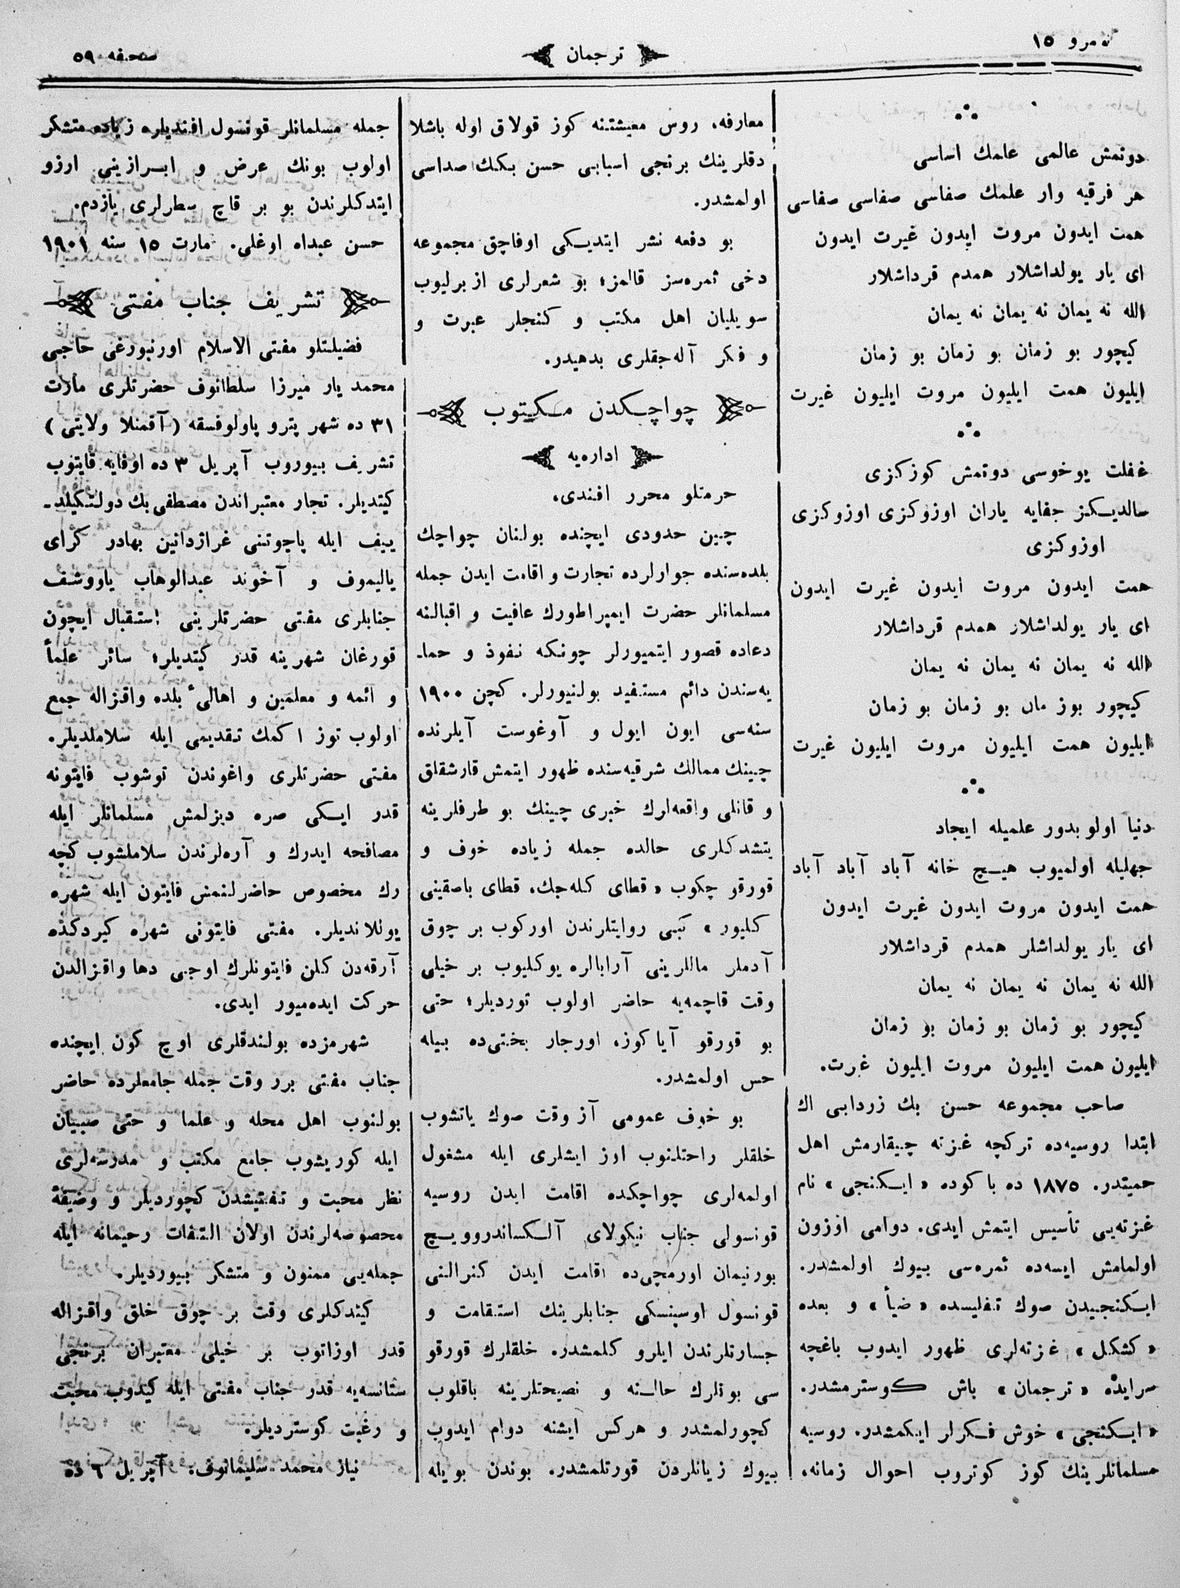 نومرو ١٥
ترجمان
صحیفه ٥٩
دوتمش عالمی علمك اساسی
هر فرقیه وار علمك صفاسی صفاسی صفاسی
همت ایدون مروت ایدون غیرت ایدون
ای یار یولداشلار همدم قرداشلار
الله نه یمان نه یمان نه یمان
کیچور بو زمان بو زمان بو زمان
ایلیون همت ایلیون مروت ایلیون غیرت
غفلت یوخوسی دوتمش کوزکزی
سالدیکز جفایه یاران اوزوکزی اوزوکزی
اوزوکزی
همت ایدون مروت ایدون غیرت ایدون
ای یار یولداشلار همدم قرداشلار
الله نه یمان نه یمان نه یمان
کیچور بوز مان بو زمان بو زمان
ایلیون همت ایلیون مروت ایلیون غیرت
دنیا اولوبدور علمیله ایجاد
جهلیله اولمیوب هیچ خانه آباد آباد آباد
همت ایدون مروت ایدون غیرت ایدون
ای یار یولداشلر همدم قرداشلار
الله نه یمان نه یمان نه یمان
کیچور بو زمان بو زمان بو زمان
ایلیون همت ایلیون مروت ایلیون غیرت.
صاحب مجموعه حسن بك زردابی اك
ابتدا روسیه‌ده ترکچه غزته چیقارمش اهل
حمیتدر. ١٨٧٥ ده باکوده «ایکنجی» نام
غزته‌یی تأسیس ایتمش ایدی. دوامی اوزون
اولمامش ایسه‌ده ثمره‌سی بیوك اولمشدر.
ایکنجیدن صوك تفلیسده «ضیأ» و بعده
«کشکل» غزته‌لری ظهور ایدوب باغچه
سرایده «ترجمان» باش کوسترمشدر.
«ایکنجی» خوش فکرلر ایکمشدر. روسیه
مسلمانلرینك کوز کوتروب احوال زمانه،
معارفه، روس معیشتنه کوز قولاق اوله باشلا
دقلرینك برنجی اسبابی حسن بکك صداسی
اولمشدر.
بو دفعه نشر ایتدیکی اوفاچق مجموعه
دخی ثمره‌سز قالمز؛ بو شعرلری ازبرلیوب
سویلیان اهل مکتب و کنجلر عبرت و
و فکر آله‌جقلری بدهیدر.
چواچکدن مکتوب
اداره‌یه
حرمتلو محرر افندی،
چین حدودی ایچنده بولنان چواچك
بلده‌سنده جوارلرده تجارت و اقامت ایدن جمله
مسلمانلر حضرت ایمپراطورك عافیت و اقبالنه
دعاده قصور ایتمیورلر چونکه نفوذ و حما‌ـ
یه‌سندن دائم مستفید بولنیورلر. کچن ١٩٠٠
سنه‌سی ایون ایول و آوغوست آیلرنده
چینك ممالك شرقیه‌سنده ظهور ایتمش قارشقلق
و قانلی واقعه‌لرك خبری چینك بو طرفلرینه
یتشدکلری حالده جمله زیاده خوف و
قورقو چکوب «قطای کله‌جك، قطای باصقینی
کلیور» کبی روایتلرندن اورکوب بر چوق
آدملر ماللرینی آرابالره یوکلیوب بر خیلی
وقت قاچمه‌یه حاضر اولوب توردیلر؛ حتی
بو قورقو آیاکوز، اورجار بختی‌ده بیله
حس اولمشدر.
بو خوف عمومی آز وقت صوك یاتشوب
خلقلر راحتلنوب اوز ایشلری ایله مشغول
اولمه‌لری چواچکده اقامت ایدن روسیه
قونسولی جناب نیکولای آلکساندروویچ
بورنیمان اورمچی‌ده اقامت ایدن کنرالنی
قونسول اوسپنسکی جنابلرینك استقامت و
جسارتلرندن ایلرو کلمشدر. خلقلرك قورقو
سی بونلرك حالنه و نصیحتلرینه باقلوب
کچورلمشدر و هرکس ایشنه دوام ایدوب
بیوك زیانلردن قورتلمشدر. بوندن بویله
جمله مسلمانلر قونسول افندیلره زیاده متشکر
اولوب بونك عرض و ابرازینی ارزو
ایتدکلرندن بو بر قاچ سطرلری یازدم.
حسن عبداه اوغلی. مارت ١٥ سنه ١٩٠١
تشریف جناب مفتی
فضیلتلو مفتی الاسلام اورنبورغی حاجی
محمد یار میرزا سلطانوف حضرتلری مارت
٣١ ده شهر پترو پاولوفسقه (آقمنلا ولایتی)
تشریف بیوروب آپریل ٣ ده اوفایه قایتوب
کیتدیلر. تجار معتبراندن مصطفی بك دولتکیلد‌ـ
ییف ایله پاچوتنی غراژدانین بهادر کرای
یالیموف و آخوند عبدالوهاب یاووشف
جنابلری مفتی حضرتلرینی استقبال ایچون
قورغان شهرینه قدر کیتدیلر؛ سائر علمأ
و آئمه و معلمین و اهالیٔ بلده واقزاله جمع
اولوب توز اکمك تقدیمی ایله سلاملدیلر.
مفتی حضرتلری واغوندن توشوب فایتونه
قدر ایکی صره دیزلمش مسلمانلر ایله
مصافحه ایدرك و آره‌لرندن سلاملشوب کچه
رك مخصوص حاضرلنمش فایتون ایله شهره
یوللاندیلر. مفتی فایتونی شهره کیردکده
آرقه‌دن کلن فایتونلرك اوجی دها واقزالدن
حرکت ایده‌میور ایدی.
شهرمزده بولندقلری اوچ کون ایچنده
جناب مفتی برر وقت جمله جامعلرده حاضر
بولنوب اهل محله و علما و حتی صبیان
ایله کوریشوب جامع مکتب و مدرسه‌لری
نظر محبت و تفتیشدن کچوردیلر و وضیفهٔ
مخصوصه‌لرندن اولان التفات رحیمانه ایله
جمله‌یی ممنون و متشکر بیوردیلر.
کیتدکلری وقت بر چوق خلق واقزاله
قدر اوزاتوب بر خیلی معتبران برنجی
ستانسه‌یه قدر جناب مفتی ایله کیدوب محبت
و رغبت کوستردیلر.
نیاز محمد سلیمانوف. آپریل ٦ ده